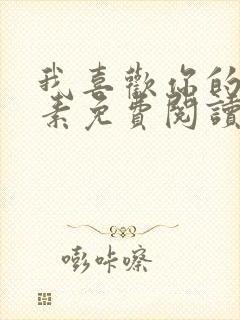 我喜歡你的
素免費閱讀
嘭咔嚓